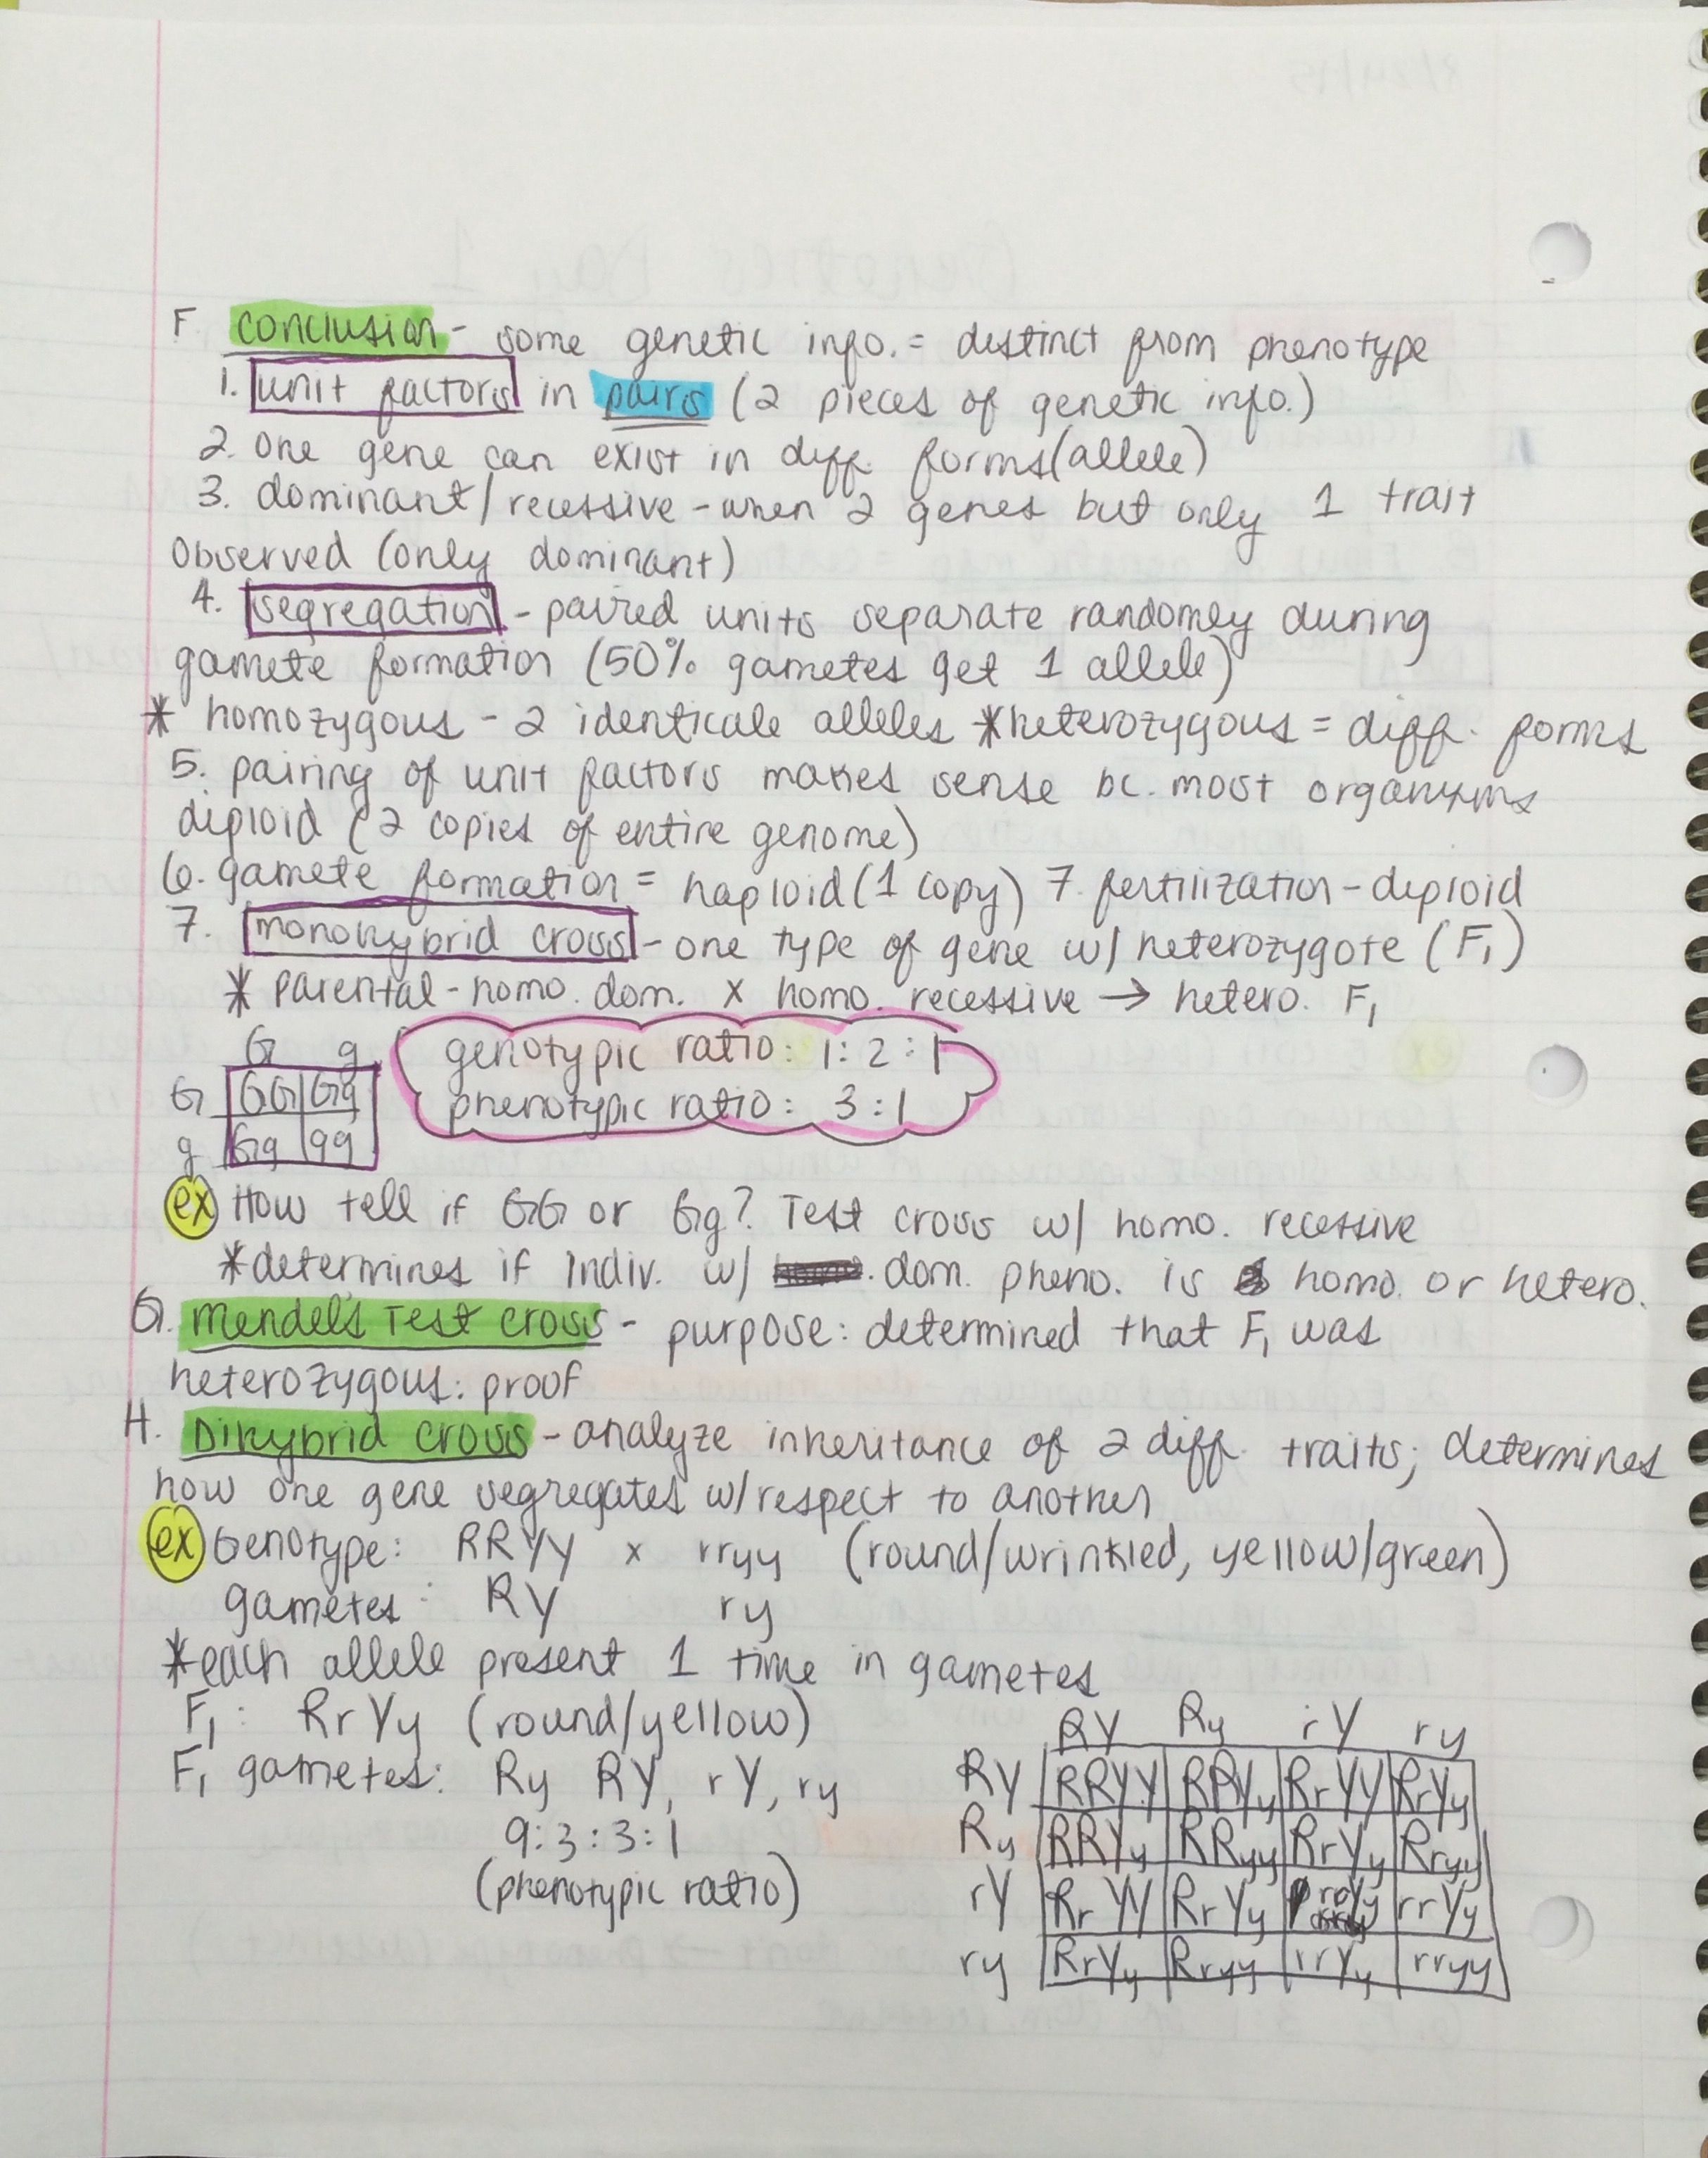 F. conclusion - some genetic info. = distinct from phenotype
1. unit factors in pairs (2 pieces of genetic info.)
2. one gene can exist in diff. forms (allele)
3. dominant/recessive - when 2 genes but only 1 trait
observed (only dominant)
4. segregation - paired units separate randomly during
gamete formation (50% gametes get 1 allele)
* homozygous - 2 identicale alleles *heterozygous = diff. forms
5. pairing of unit factors makes sense bc. most organisms
diploid (2 copies of entire genome)
6. gamete formation = haploid (1 copy) 7. fertilization - diploid
7. monohybrid cross - one type of gene w/ heterozygote (F₁)
* parental - homo. dom. x homo. recessive → hetero. F₁
G g genotypic ratio: 1:2:1
G GG Gg phenotypic ratio: 3:1
g Gg gg
ex How tell if GG or Gg? Test cross w/ homo. recessive
*determines if indiv. w/ dom. pheno. is homo. or hetero.
G. Mendel's Test cross - purpose: determined that F₁ was
heterozygous: proof
H. Dihybrid cross - analyze inheritance of 2 diff. traits; determines
how one gene segregates w/respect to another
ex Genotype: RRYY x rryy (round/wrinkled, yellow/green)
gametes: RY ry
*each allele present 1 time in gametes
F₁: RrYy (round/yellow)
F₁ gametes: Ry RY, rY, ry
9:3:3:1
(phenotypic ratio)
RY Ry rY ry
RY RRYY RRYy RrYY RrYy
Ry RRYy RRyy RrYy Rryy
rY RrYY RrYy rrYy
ry RrYy Rryy rrYy rryy